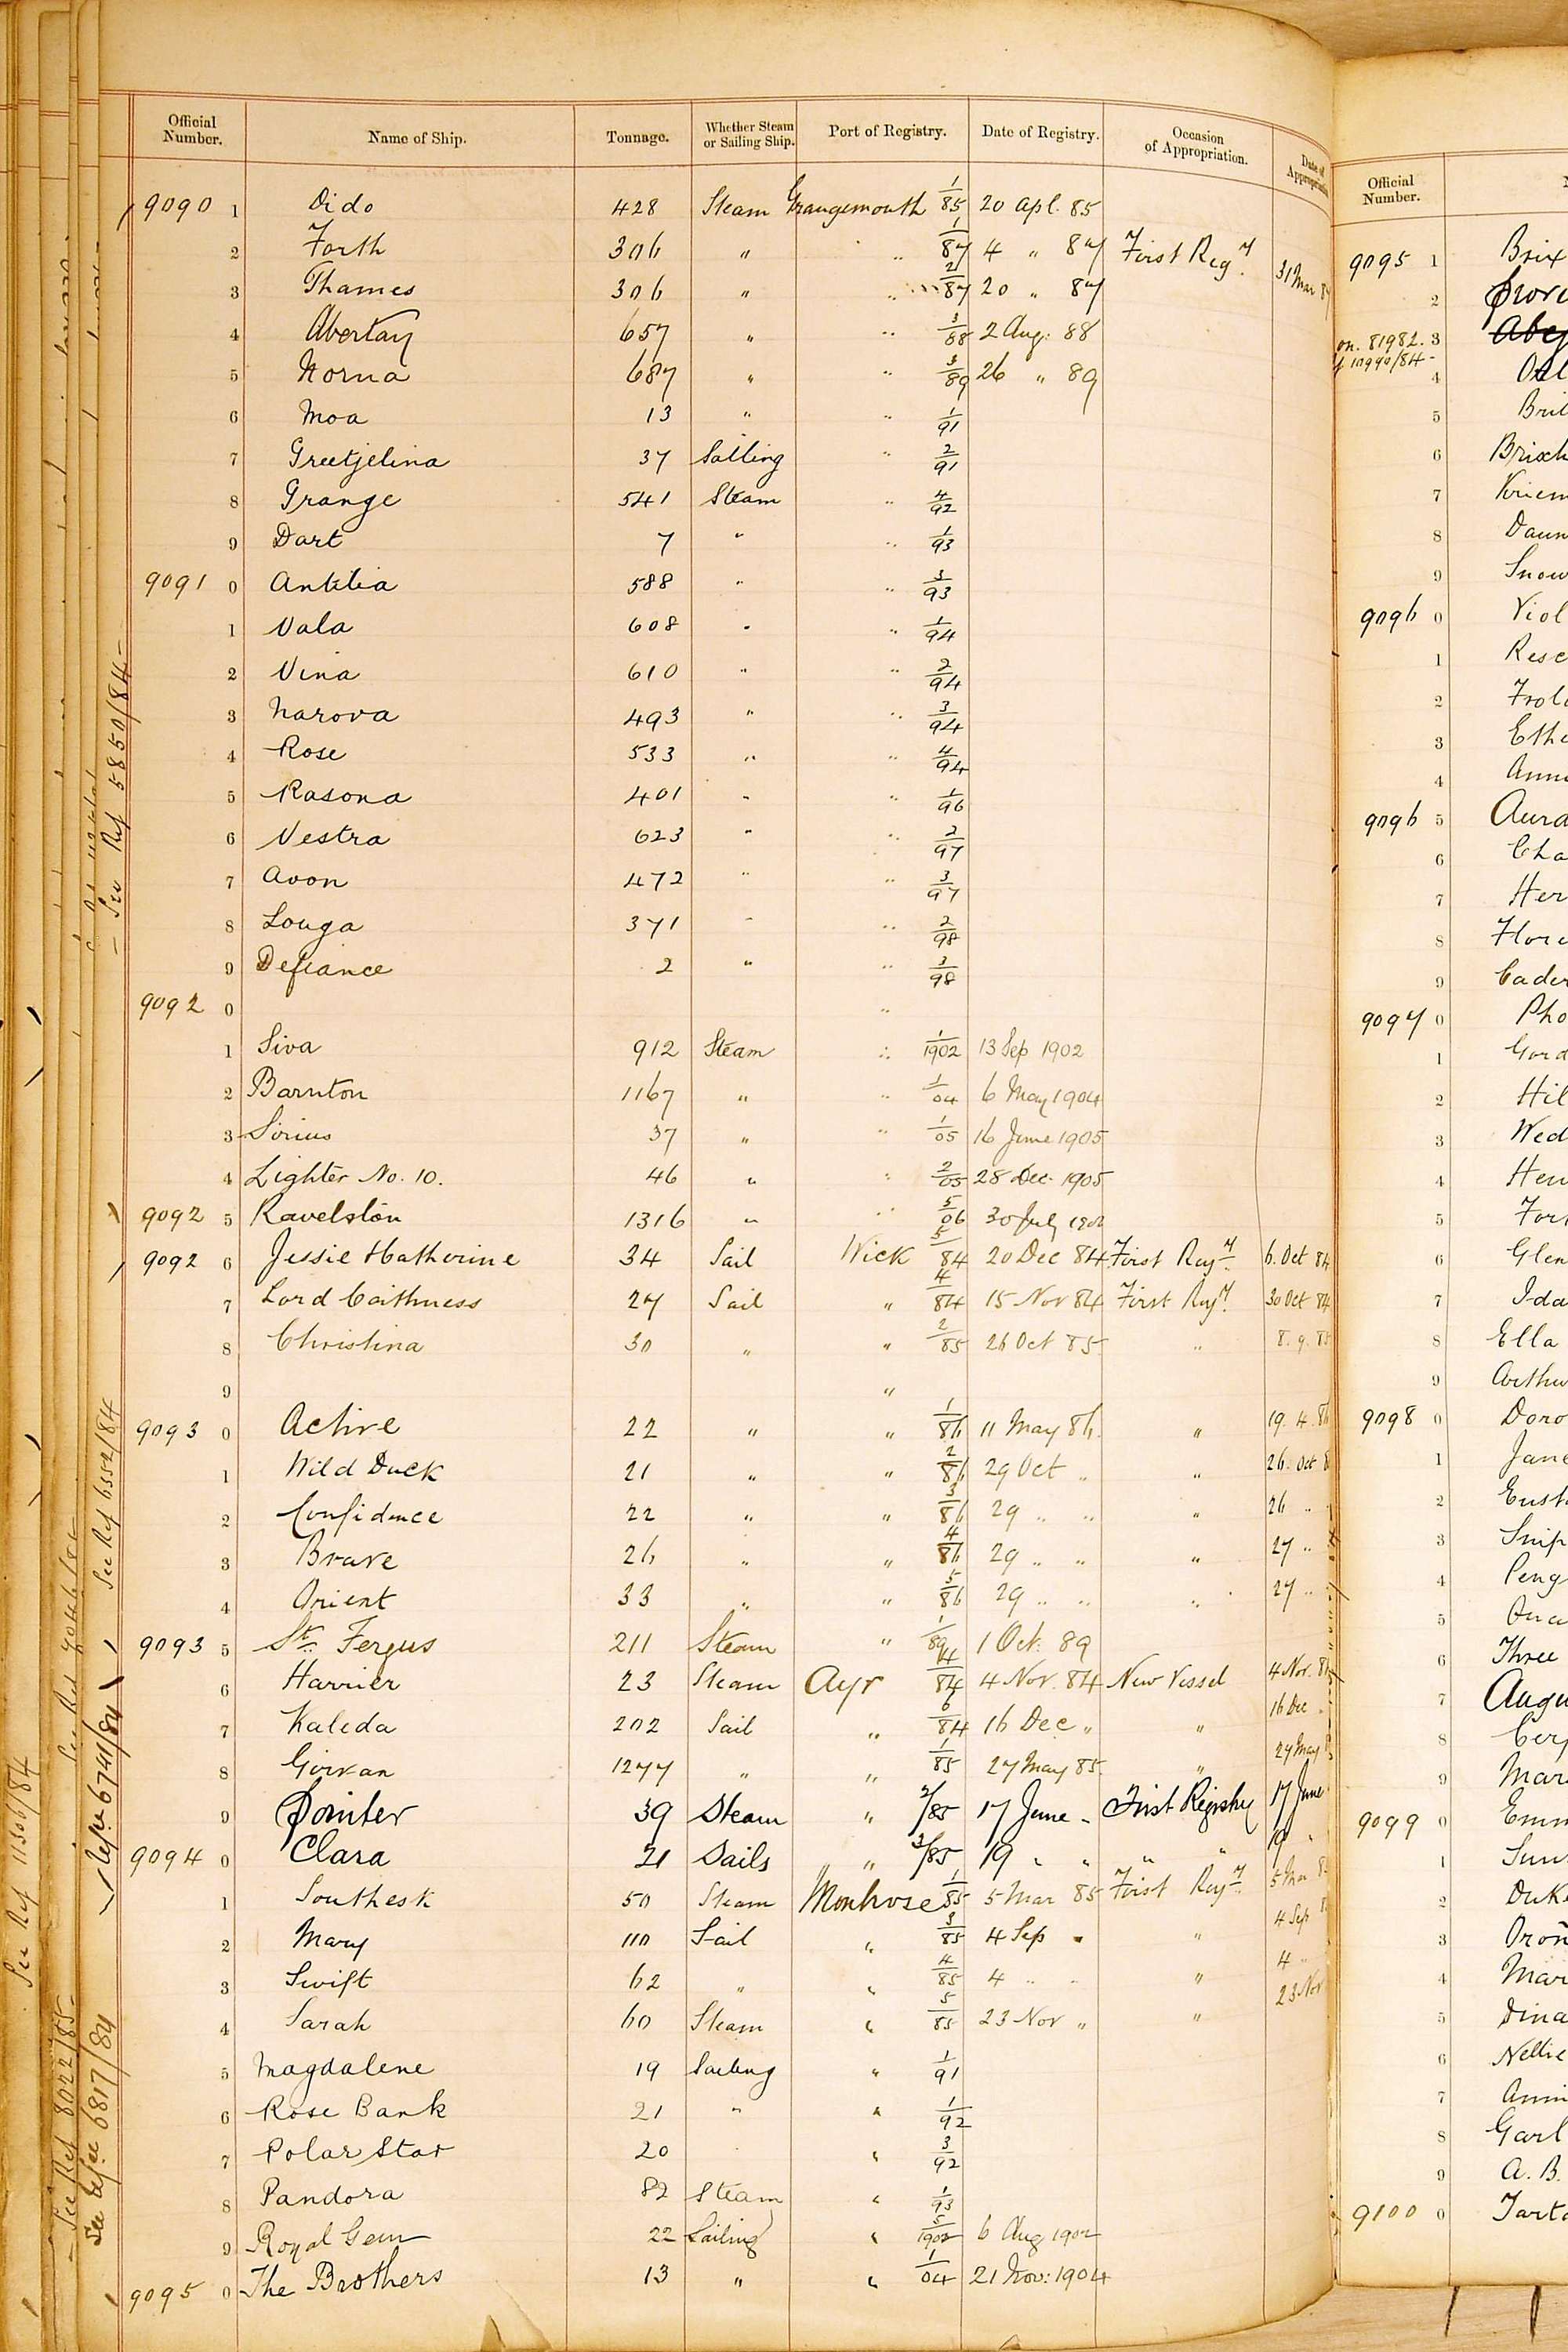 Official Number. Name of Ship. Tonnage. Whether Steam or Sailing Ship. Port of Registry. Date of Registry. Occasion of Appropriation. Date of Appropriation
9090 1 Dido 428 Steam Grangemouth 1/85 20 Apl. 85
2 Forth 306 " " 1/87 4 " 87 First Regy. 31 Mar 87
3 Thames 306 " " 2/87 20 " 87
4 Abertay 657 " " 3/88 2 Aug. 88
5 Norna 687 " " 3/89 26 " 89
6 Moa 13 " " 1/91
7 Greetjelina 37 Sailing " 2/91
8 Grange 541 Steam " 4/92
9 Dart 7 " " 1/93
9091 0 Anklia 588 " " 3/93
1 Vala 608 " " 1/94
2 Vina 610 " " 2/94
3 Narova 493 " " 3/94
4 Rose 533 " " 4/94
5 Rasona 401 " " 1/96
6 Vestra 623 " " 2/97
7 Avon 472 " " 3/97
8 Louga 371 " " 2/98
9 Defiance 2 " " 3/98
9092 0 "
1 Siva 912 Steam " 1/1902 13 Sep 1902
2 Barnton 1167 " " 1/04 6 May 1904
3 Sirius 37 " " 1/05 16 June 1905
4 Lighter No. 10. 46 " " 2/05 28 Dec. 1905
9092 5 Ravelston 1316 " " 5/06 30 July 1906
9092 6 Jessie Katherine 34 Sail Wick 5/84 20 Dec 84 First Regy. 6. Oct 84
7 Lord Caithness 27 Sail " 4/84 15 Nov 84 First Regy. 30 Oct 84
8 Christina 30 " " 2/85 26 Oct 85 " 8. 9. 85
9 "
9093 0 Active 22 " " 1/86 11 May 86. " 19. 4. 86
1 Wild Duck 21 " " 2/86 29 Oct " " 26. Oct 8
2 Confidence 22 " " 3/86 29 " " " 26 "
3 Brave 26 " " 4/86 29 " " " 27 "
4 Orient 33 " " 5/86 29 " " " 27 "
9093 5 St. Fergus 211 Steam " 1/89 1 Oct. 89
6 Harrier 23 Steam Ayr 4/84 4 Nov. 84 New Vessel 4 Nov. 84
7 Kaleda 202 Sail " 6/84 16 Dec " " 16 Dec "
8 Girvan 1277 " " 1/85 27 May 85. " 27 May
9 Pointer 39 Steam " 2/85 17 June " First Registry 17 June
9094 0 Clara 21 Sails " " 3/85 19 " " " " 19 "
1 Southesk 50 Steam Montrose 1/85 5 Mar 85 First Regy. 5 Mar 8
2 Mary 110 Sail " 3/85 4 Sep " " 4 Sep
3 Swift 62 " " 4/85 4 " " " 4 "
4 Sarah 60 Steam " 5/85 23 Nov " " 23 Nov
5 Magdalene 19 Sailing " 1/91
6 Rose Bank 21 " " 1/92
7 Polar Star 20 " 3/92
8 Pandora 82 Steam " 1/93
9 Royal Gem 22 Sailing " 5/1902 6 Aug 1902
9095 0 The Brothers 13 " " 1/04 21 Nov: 1904
See Ref 5850/84
See Ref 6352/84
Refce 6741/84
See Refce 6817/84
See Ref 8022/85
See Ref 11306/84
Official Number.
9095 1 Brix
2
on. 81982. 3
10990/84 4
5 Bril
6 Brixh
7
8 Daun
9 Snow
9096 0 Viol
1 Resc
2 Frol
3 Ethe
4 Anni
9096 5 Aura
6 Cha
7 Her
8 Flore
9 Cader
9097 0 Pho
1 Gord
2 Hil
3 Wed
4 Hen
5 For
6 Glen
7 Ida
8 Ella
9 Arthu
9098 0 Doro
1 Jane
2 Eust
3 Snip
4 Peng
5
6 Three
7 Augu
8 Cery
9 Mar
9099 0 Emm
1 Sun
2 Duke
3 Oron
4 Mar
5 Dina
6 Nellie
7 Anni
8 Garl
9 A. B.
9100 0 Tart